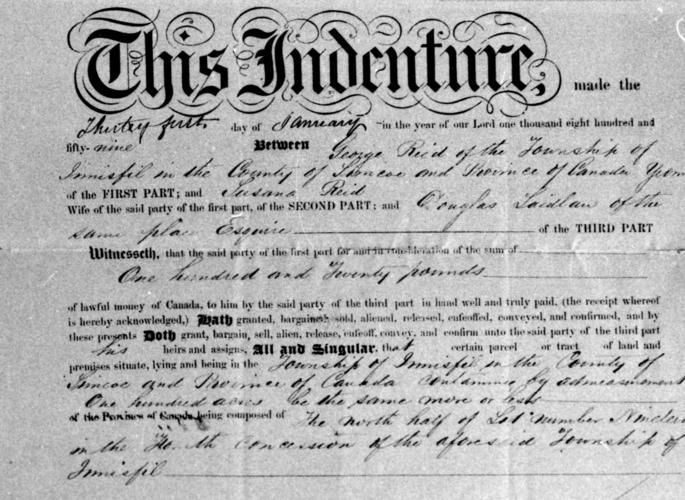 This Indenture, made the
Thirtey first day of January in the year of our Lord one thousand eight hundred and
fifty-nine Between George Reid of the Township of
Innisfil in the County of Simcoe and Province of Canada Yeom
of the FIRST PART; and Susana Reid
Wife of the said party of the first part, of the SECOND PART; and Douglas Laidlaw of the
same place Esquire of the THIRD PART
Witnesseth, that the said party of the first part for and in consideration of the sum of
One hundred and Twenty pounds
of lawful money of Canada, to him by the said party of the third part in hand well and truly paid, (the receipt whereof
is hereby acknowledged,) Hath granted, bargained, sold, aliened, released, enfeoffed, conveyed, and confirmed, and by
these presents Doth grant, bargain, sell, alien, release, enfeoff, convey, and confirm unto the said party of the third part
his heirs and assigns, All and Singular, that certain parcel or tract of land and
premises situate, lying and being in the Township of Innisfil in the County of
Simcoe and Province of Canada by admeasurement
One hundred acres be the same more or less
of the Province of Canada, being composed of The north half of Lot number
in the concession of the aforesaid Township of
Innisfil